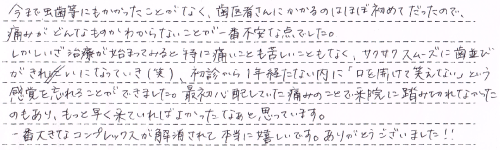 今まで虫歯等にもかかったことがなく、歯医者さんにかかるのはほぼ初めてだったので、
痛みがどんなものかわからないことが一番不安な点でした。
しかしいざ治療が始まってみると特に痛いことも苦しいこともなく、サクサクスムーズに歯並び
がきれいになっていき(笑)、初診から1年経たない内に「口を開けて笑えない」という
感覚を忘れることができました。最初心配していた痛みのことで来院に踏みきれなかった
のもあり、もっと早く来ていればよかったなぁと思っています。
一番大きなコンプレックスが解消されて本当に嬉しいです。ありがとうございました!!